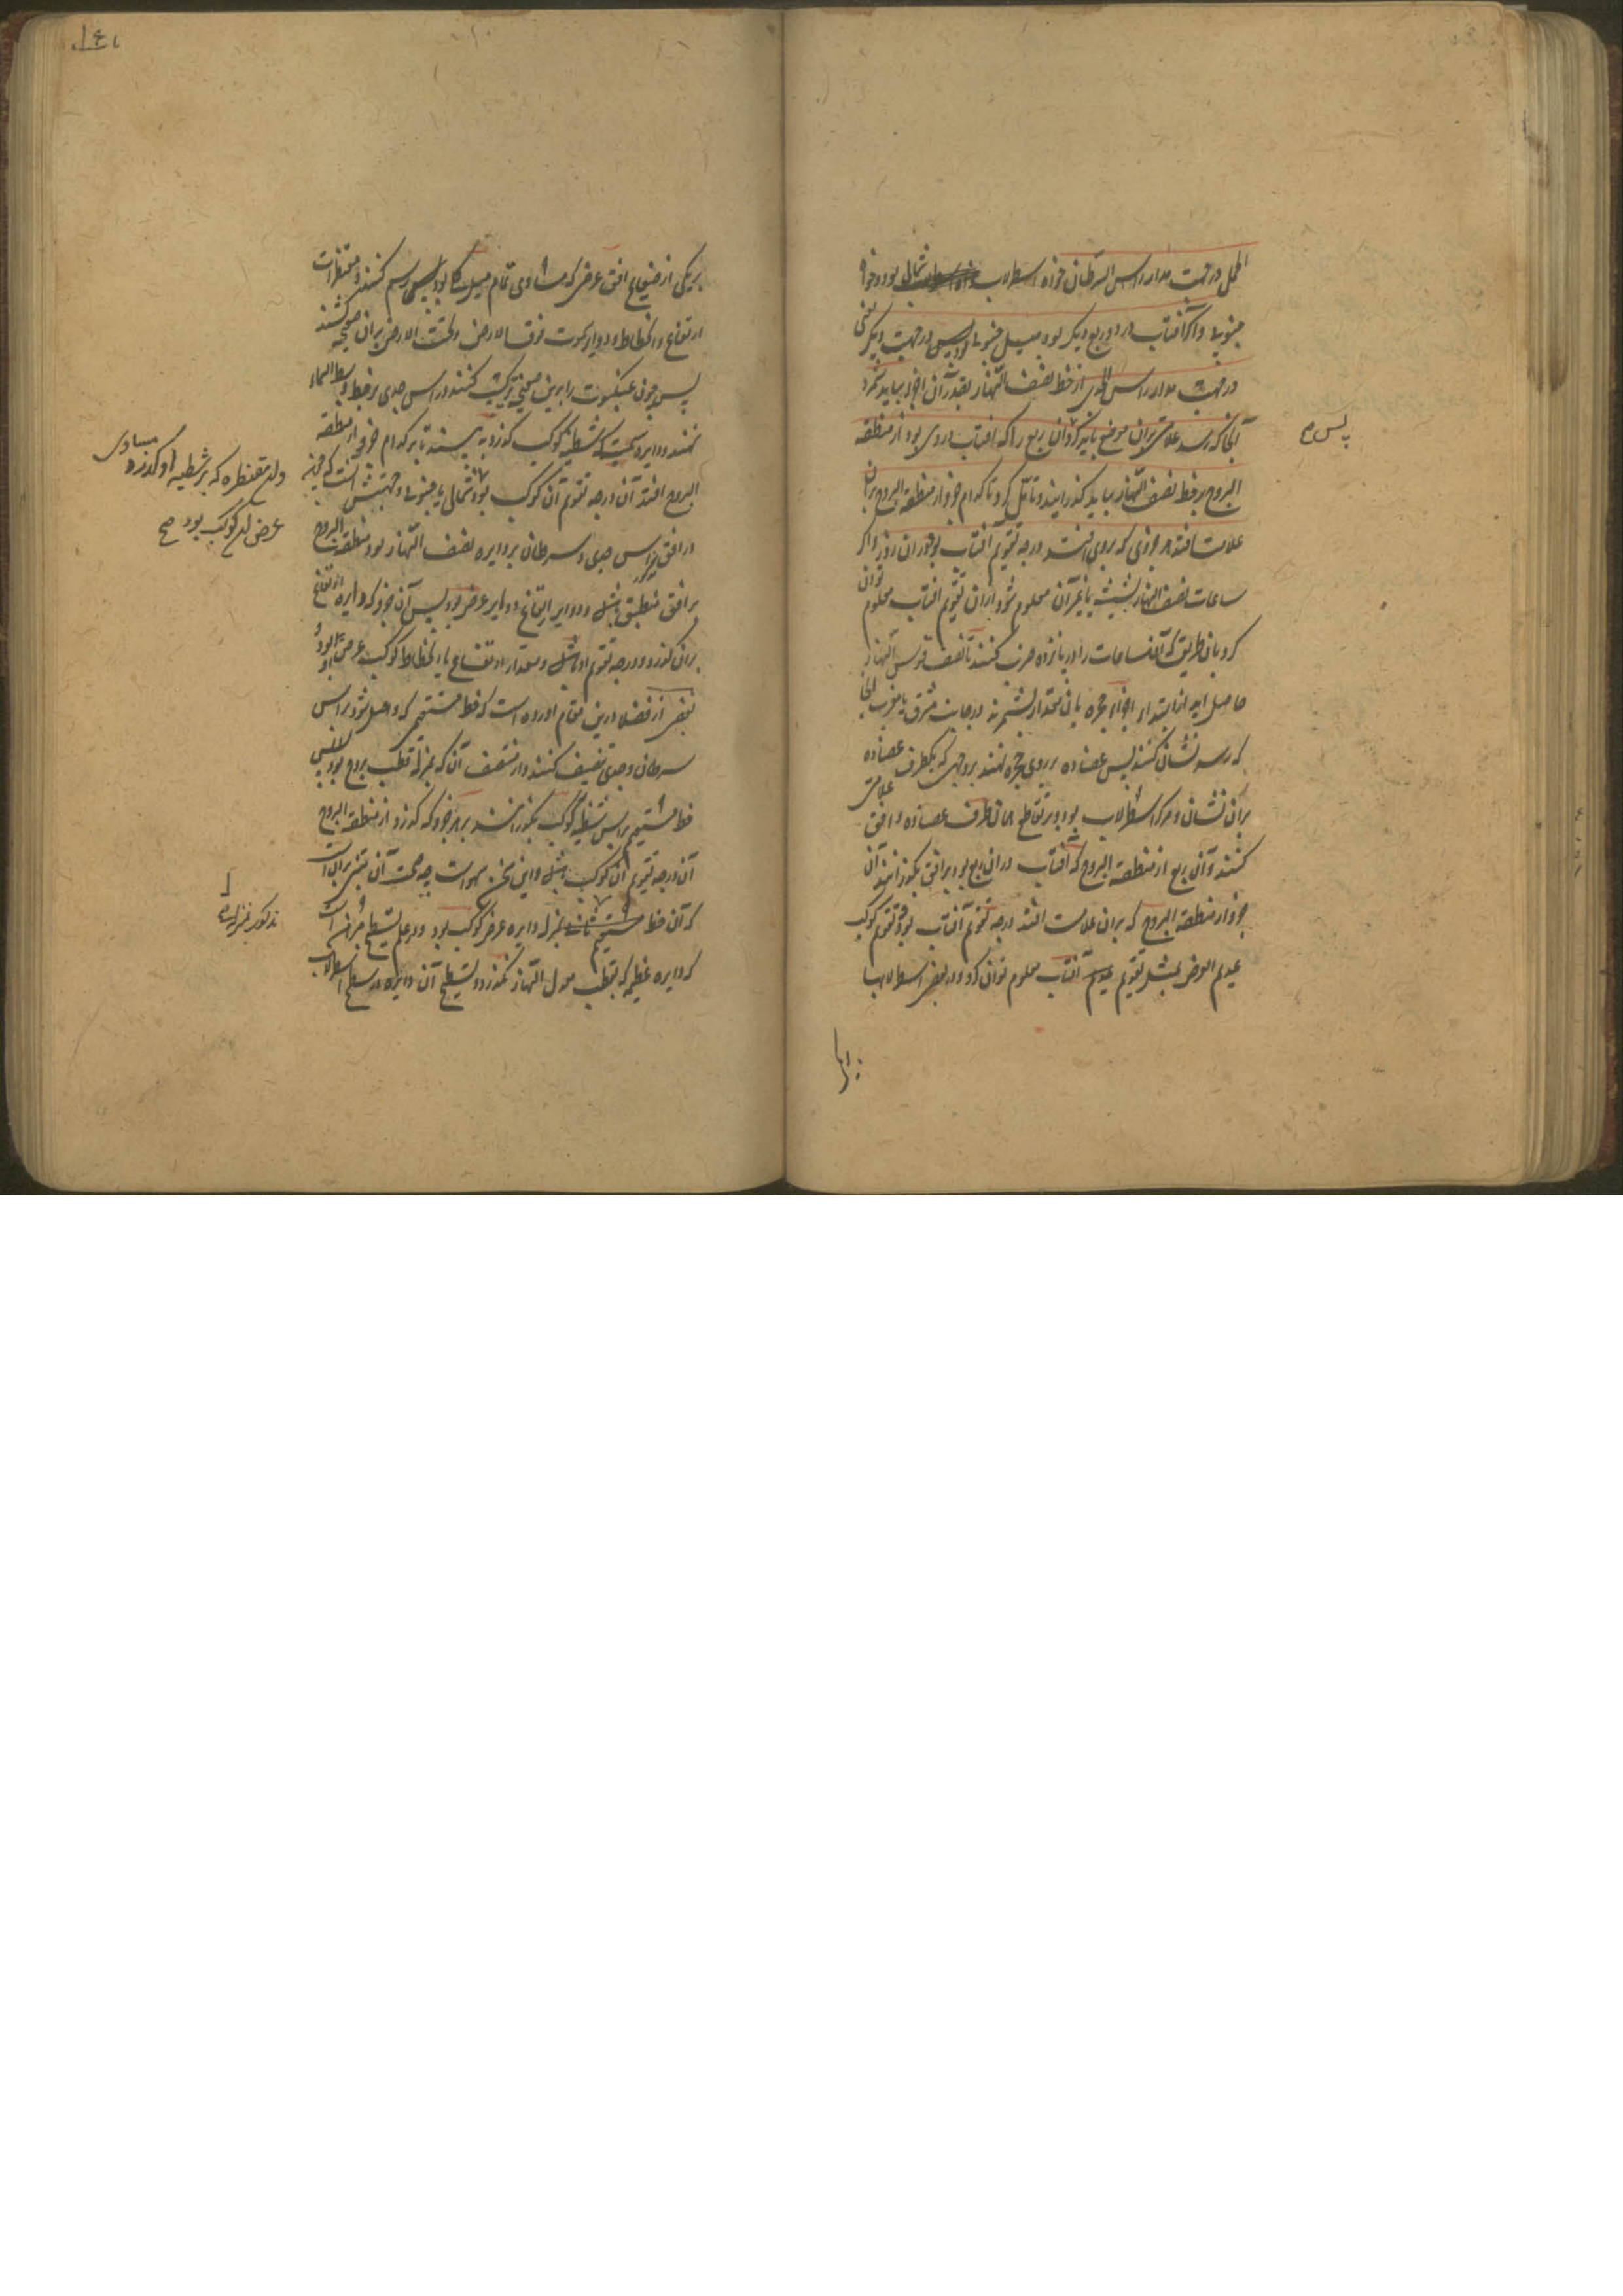 الحمل در جهت مدار راس السرطان خواه اسطرلاب شمالی بود و خواه
جنوبی و اگر آفتاب در دو ربع دیگر بود میل جنوبی بود پس در جهت دیگر یعنی
در جهت مدار راس الجدی از خط نصف النهار بقدر آن اجزا بباید شمرد
آنجا که رسد علامتی بران موضع باید کرد و آن ربع را که آفتاب در وی بود از منطقه
البروج بر خط نصف النهار بباید گذرانید و تامل کرد تا کدام جزو از منطقة البروج بران
علامت افتد هر جزوی که بر وی افتد درجه تقویم آفتاب بود در آن روز و اگر
ساعات نصف النهار بشیشه یا بغیر آن معلوم شود ازان تقویم آفتاب معلوم توان
کرد بان طریق که آن ساعات را در پانزده ضرب کنند تا نصف قوس النهار
حاصل آید از ابتدای اجزاء حجره بان مقدار بشمرند در جانب مشرق یا مغرب آنجا
که رسد نشان کنند پس عضاده بر روی حجره نهند بر وجهی که یکطرف عضاده
بران نشان و مرکز اسطرلاب بود و بر تقاطع آن طرف عضاده و افق علامتی
کنند و آن ربع از منطقة البروج که آفتاب در آن ربع بود بر افق بگذرانند آن
جزو از منطقة البروج که بران علامت افتد درجه تقویم آفتاب بود و تقویم کوکب
عدیم العرض بمثل تقویم آفتاب معلوم توان کرد و در بعض اسطرلابها
پس صح
بریکی از صفایح افق عرضی که مساوی تمام میل کلی بود رسم کنند و مقنطرات
ارتفاع و انحطاط و دوایر سموت فوق الارض و تحت الارض بران صفیحه کشند
پس چون عنکبوت را برین صفیحه ترکیب کنند و راس جدی بر خط وسط السماء
نهند و دایره سمتی که بشظیه کوکب گذرد ببینند تا بر کدام جزو از منطقه
البروج افتد آن درجه تقویم آن کوکب بود
در افق مذکور راس جدی و سرطان بر دایره نصف النهار بود منطقة البروج
بر افق منطبق باشد و دوایر ارتفاع دوایر عرض بود پس آن جزو که دایره ارتفاع
بران گذرد درجه تقویم او باشد و مقدار ارتفاع یا انحطاط کوکب عرض او بود و
بعضی از فضلا درین مقام آورده است که خط مستقیمی که واصل شود براس
سرطان و جدی تنصیف کنند و از منتصف آن که بمنزله قطب بروج بود
خط مستقیم براس شظیه کوکب بگذرانند بر هر جزو که گذرد از منطقة البروج
آن درجه تقویم آن کوکب باشد و این سخن سهوست چه صحت آن مبنی بر آنست
که آن خط مستقیم بمنزله دایره عرض کوکب بود و در علم تسطیح مبرهن است
که دایره عظیمه که بقطب معدل النهار نگذرد تسطیح آن دایره در سطح اسطرلاب
و آن مقنطره که بر شظیه او گذرد مساوی
عرض آن کوکب بود صح